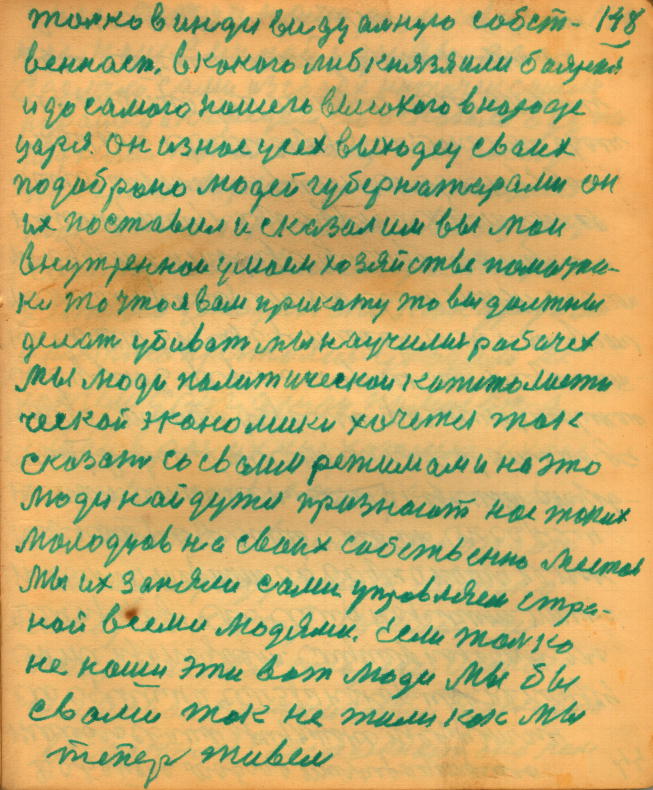 толко в индивидуалную собст- 148
веннаст. в какого либ князя или боярня
и до самого нашего высокого в народе
царя. Он из нас усех выходец своих
подобрано людей губернатарами он
их поставил и сказал им вы мои
внутреннои у моем хозяйстве помочни-
ки то что я вам прикажу то вы должны
делат убиват мы научилис рабочех
мы люди палитической капиталисти
ческой экономики хочется так
сказат со своими режимами на это
люди найдутся признают нас таких
молодцов на своих собственно местах
мы их заняли сами управляем стра-
ной всеми людями. Если толко
не наши эти вот люди мы бы
свами так не жили как мы
тепер живем